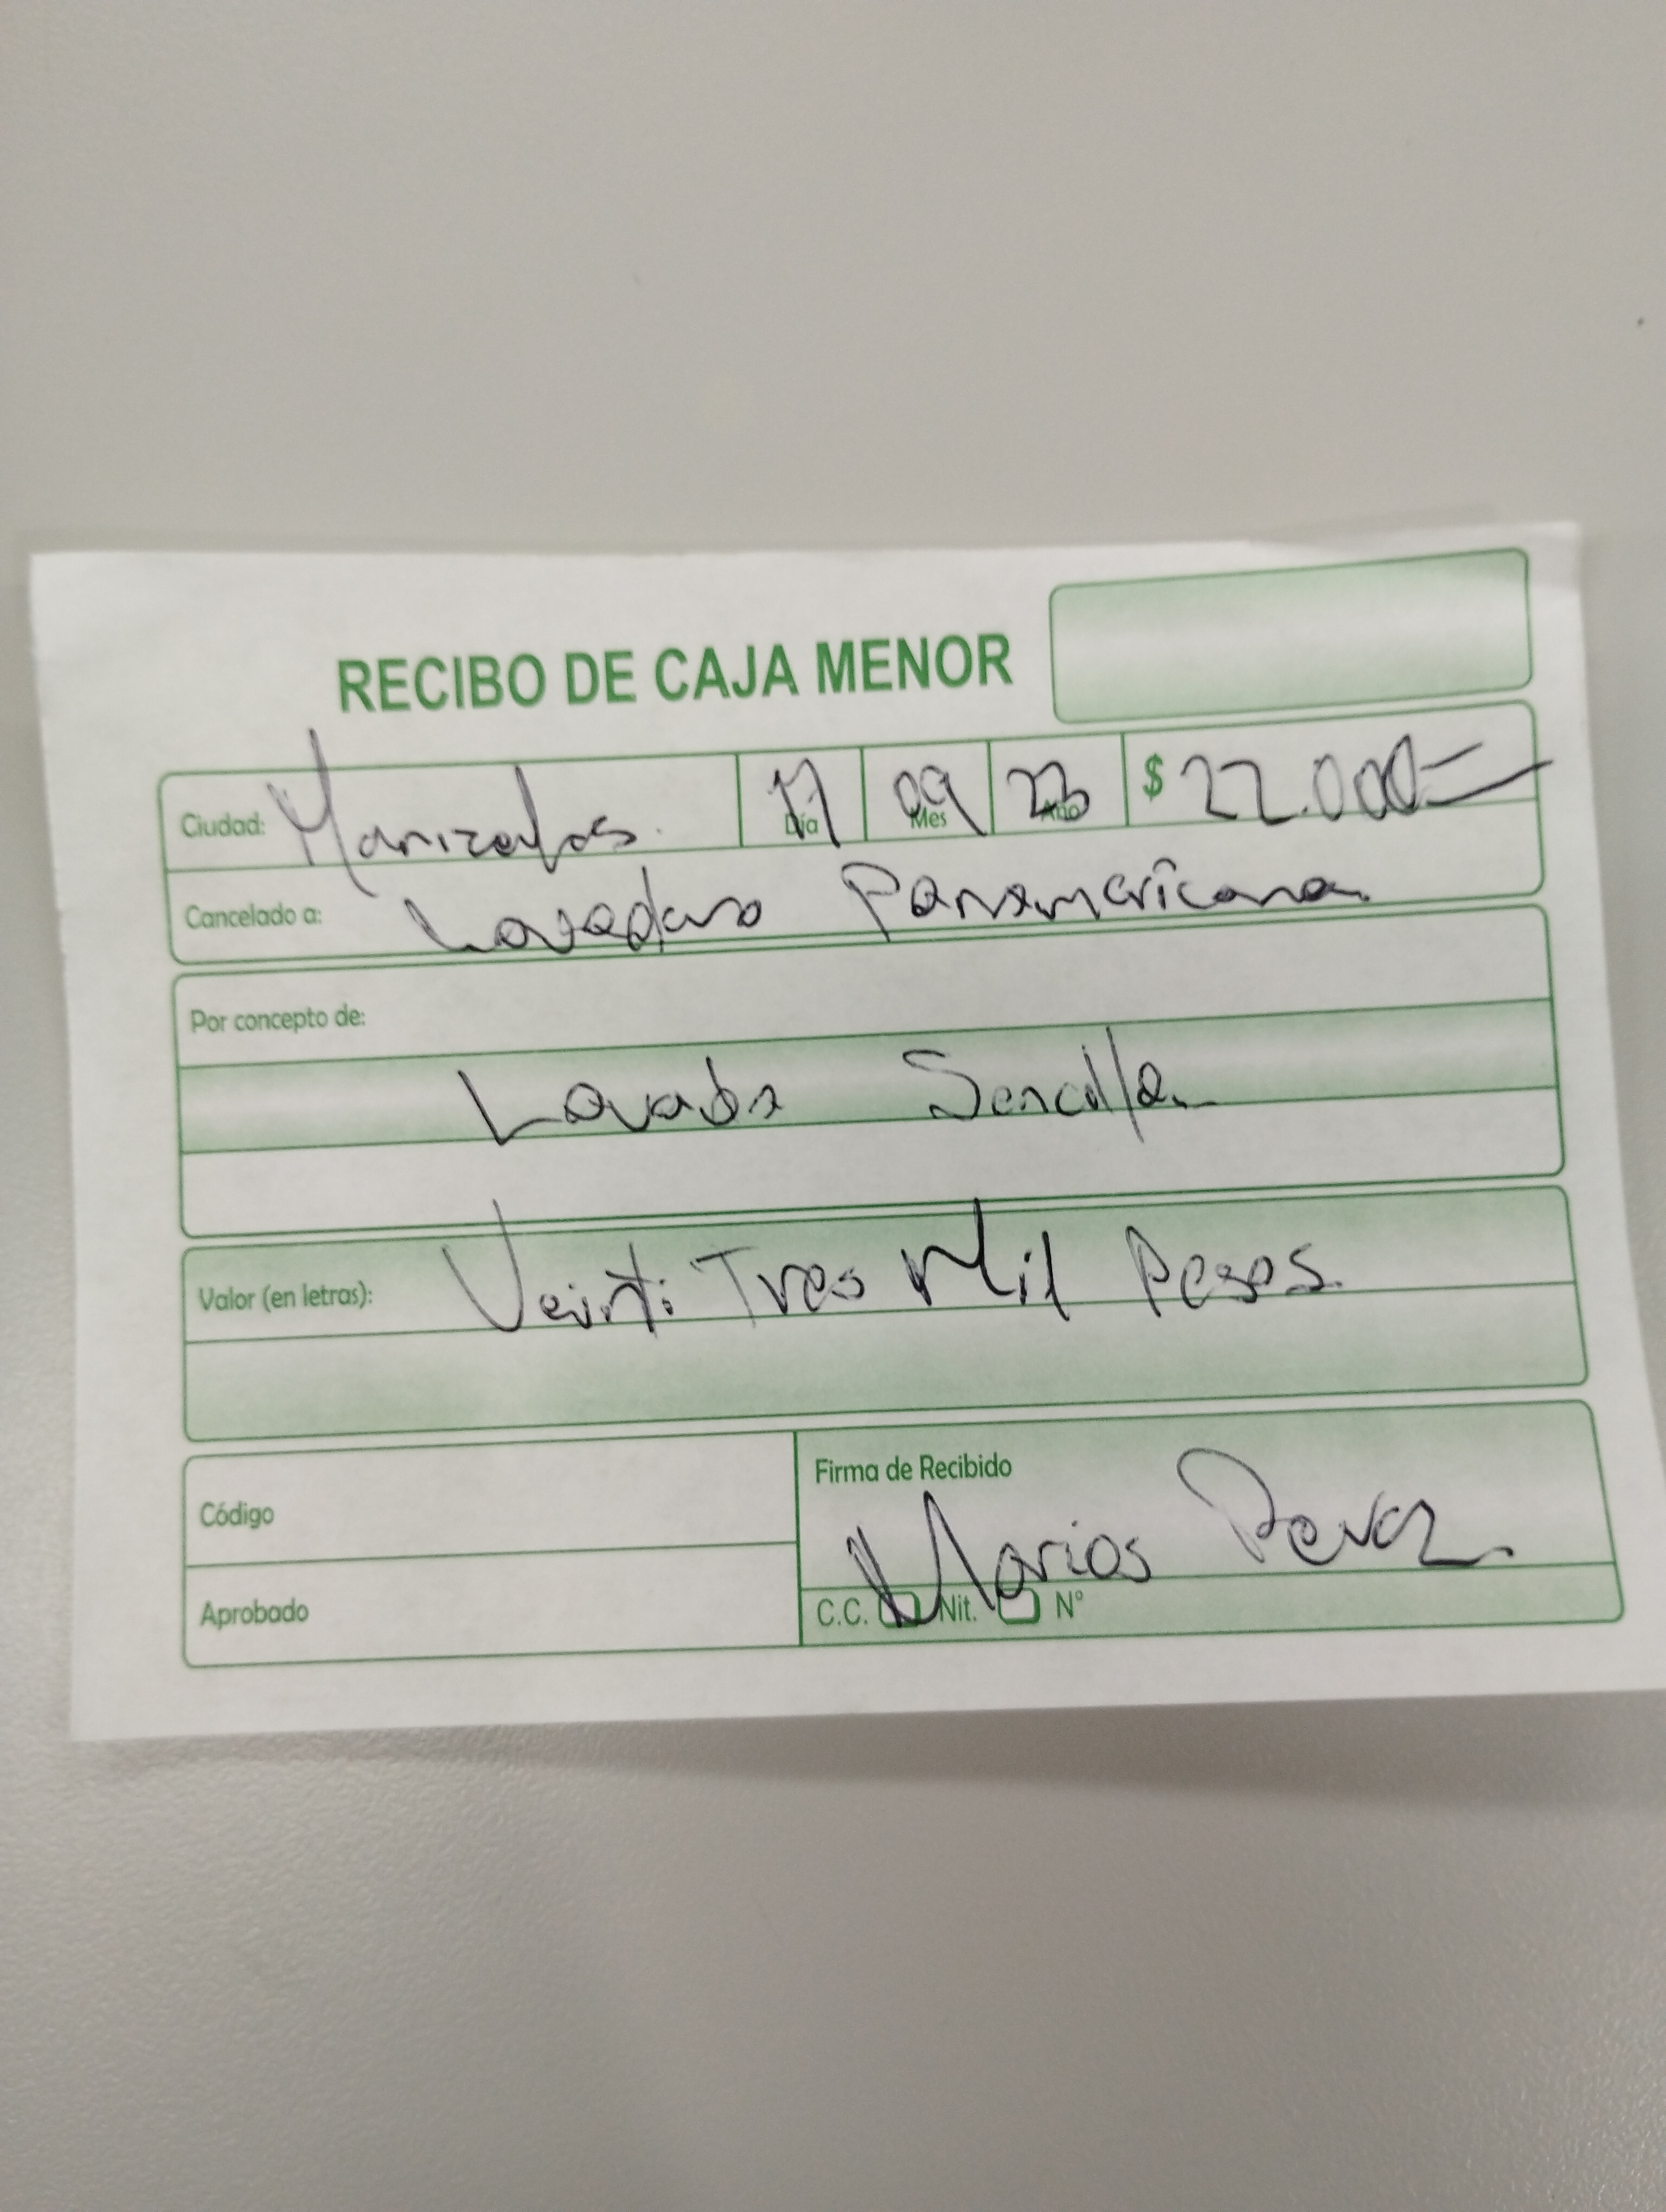 RECIBO DE CAJA MENOR
Ciudad: Manizales. Día 17 Mes 09 Año 23 $ 22.000=
Cancelado a: Lavadero Panamericana.
Por concepto de:
Lavada Sencilla
Valor (en letras): Veinti Tres Mil Pesos.
Código
Firma de Recibido
Marios Perez.
Aprobado
C.C. Nit. N°